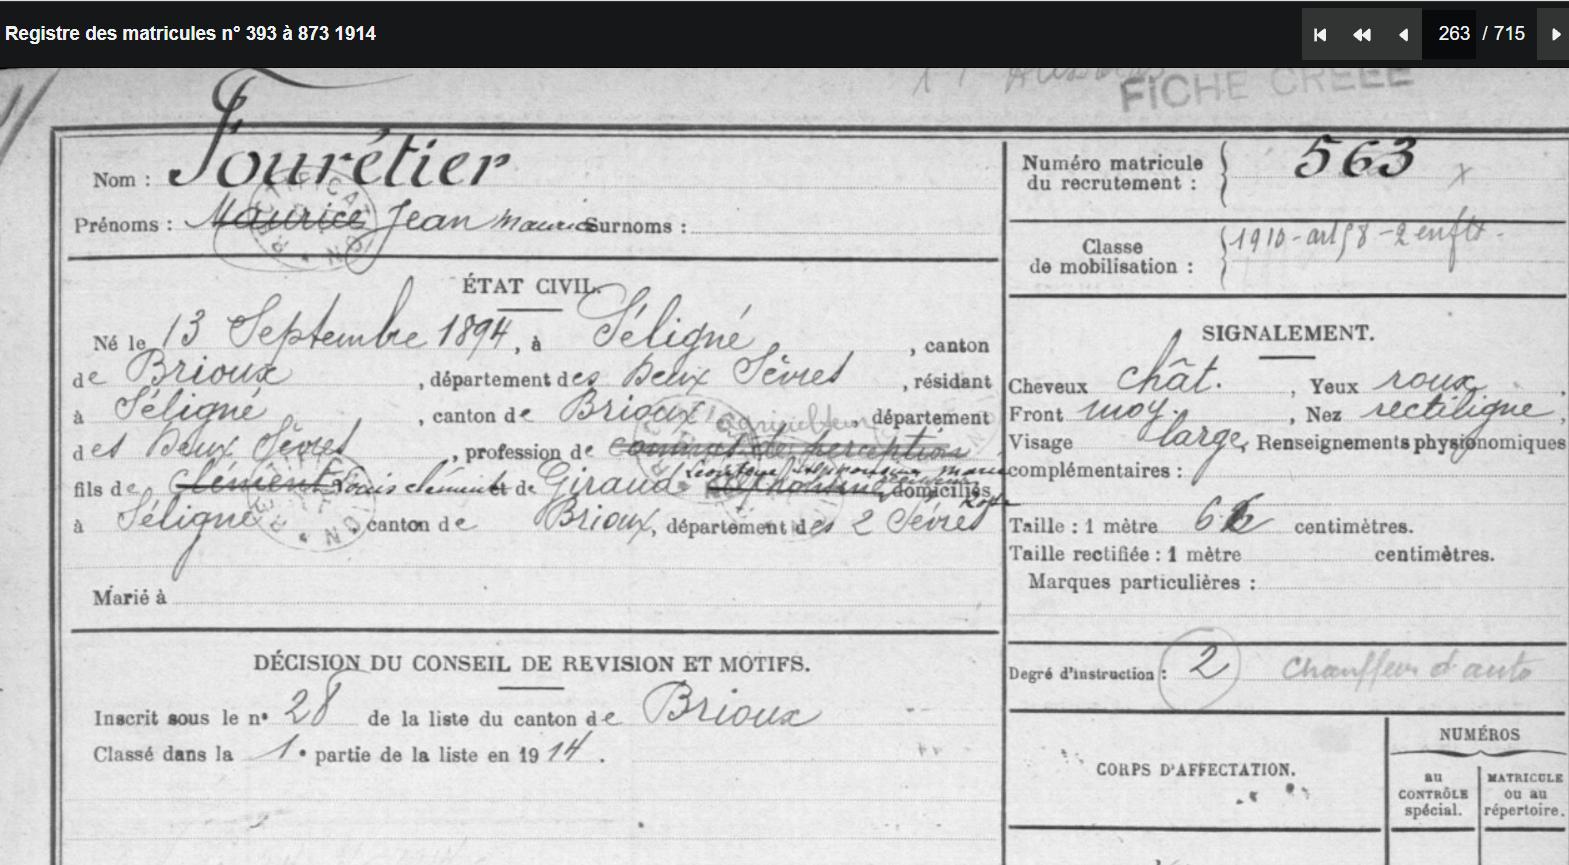 Registre des matricules n° 393 à 873 1914
263 / 715
FICHE CRÉÉE
Nom : Fourétier
Prénoms : Maurice Jean Maurice Surnoms :
ÉTAT CIVIL.
Né le 13 Septembre 1894, à Séligné, canton
de Brioux, département des Deux Sèvres, résidant
à Séligné, canton de Brioux, département
agriculteur
des Deux Sèvres, profession de commis de perception
fils de Clément Louis Clément et de Giraud domiciliés
à Séligné canton de Brioux, département des 2 Sèvres
Marié à
DÉCISION DU CONSEIL DE REVISION ET MOTIFS.
Inscrit sous le n° 28 de la liste du canton de Brioux
Classé dans la 1e partie de la liste en 1914.
Numéro matricule
du recrutement : 563
Classe
de mobilisation : 1910 - art 58 - 2 enfts.
SIGNALEMENT.
Cheveux chât., Yeux roux,
Front moy., Nez rectiligne,
Visage large, Renseignements physionomiques
complémentaires :
Taille : 1 mètre centimètres.
Taille rectifiée : 1 mètre centimètres.
Marques particulières :
Degré d'instruction : 2 Chauffeur d'auto
CORPS D'AFFECTATION.
NUMÉROS
au
CONTRÔLE
spécial.
MATRICULE
ou au
répertoire.